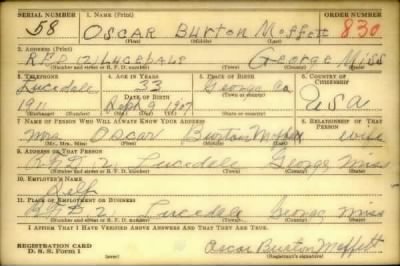 SERIAL NUMBER 1. NAME (Print) ORDER NUMBER
58 OSCAR Burton Moffett 830
(First) (Middle) (Last)
2. ADDRESS (Print)
RFD 2 LUCEDALE George Miss
(Number and street or R. F. D. number) (Town) (County) (State)
3. TELEPHONE 4. AGE IN YEARS 5. PLACE OF BIRTH 6. COUNTRY OF CITIZENSHIP
Lucedale 33 George Co
DATE OF BIRTH (Town or county)
1911 Sept 9 1907 USA
(Exchange) (Number) (Mo.) (Day) (Yr.) (State or country)
7. NAME OF PERSON WHO WILL ALWAYS KNOW YOUR ADDRESS 8. RELATIONSHIP OF THAT PERSON
Mrs Oscar Burton Moffett wife
(Mr., Mrs., Miss) (First) (Middle) (Last)
9. ADDRESS OF THAT PERSON
RFD 2 Lucedale George Miss
(Number and street or R. F. D. number) (Town) (County) (State)
10. EMPLOYER'S NAME
Self
11. PLACE OF EMPLOYMENT OR BUSINESS
RFD 2 Lucedale George Miss
(Number and street or R. F. D. number) (Town) (County) (State)
I AFFIRM THAT I HAVE VERIFIED ABOVE ANSWERS AND THAT THEY ARE TRUE.
REGISTRATION CARD Oscar Burton Moffett
D. S. S. Form 1 (over) (Registrant's signature)